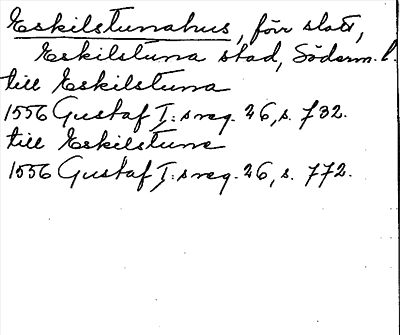 Eskilstunahus, förr slott,
Eskilstuna stad, Söderm. l.
till Eskilstuna
1556 Gustaf I:s reg. 26, s. 732.
till Eskilstune
1556 Gustaf I:s reg. 26, s. 772.